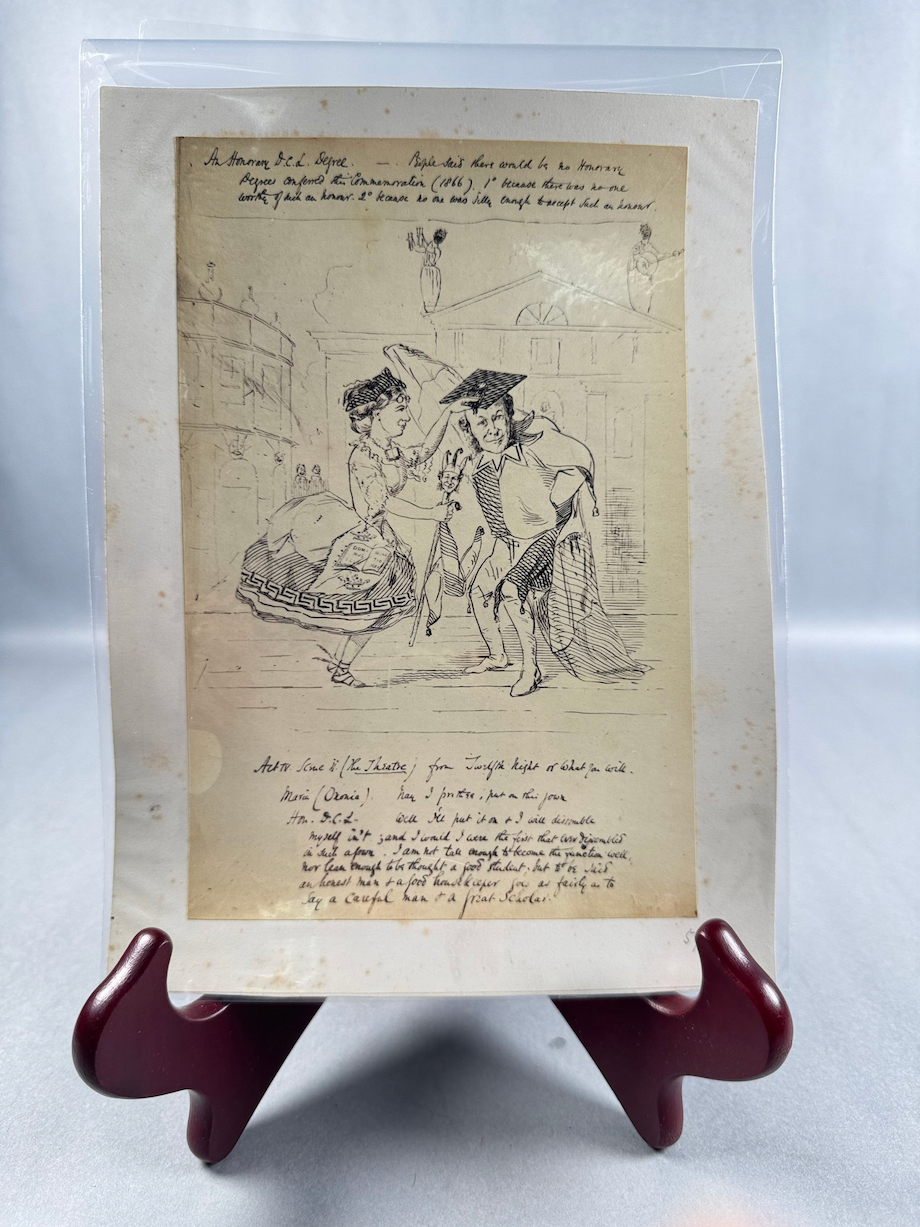 An Honorary D.C.L. Degree. — . Biple said there would be no Honorary
Degrees conferred this Commemoration (1866). 1° because there was no one
worthy of such an honour. 2° because no one was silly enough to accept such an honour.
Act IV. Scene ii (the Theatre) from Twelfth Night or What you will.
Maria (Oxonia). Nay I prythee, put on this gown
Hon. D.C.L. Well I'll put it on & I will dissemble
myself in't; and I would I were the first that ever dissembled
in such a gown. I am not tall enough to become the function well,
nor lean enough to be thought a good student; but to be said
an honest man & a good housekeeper goes as fairly as to
say a careful man & a great Scholar.